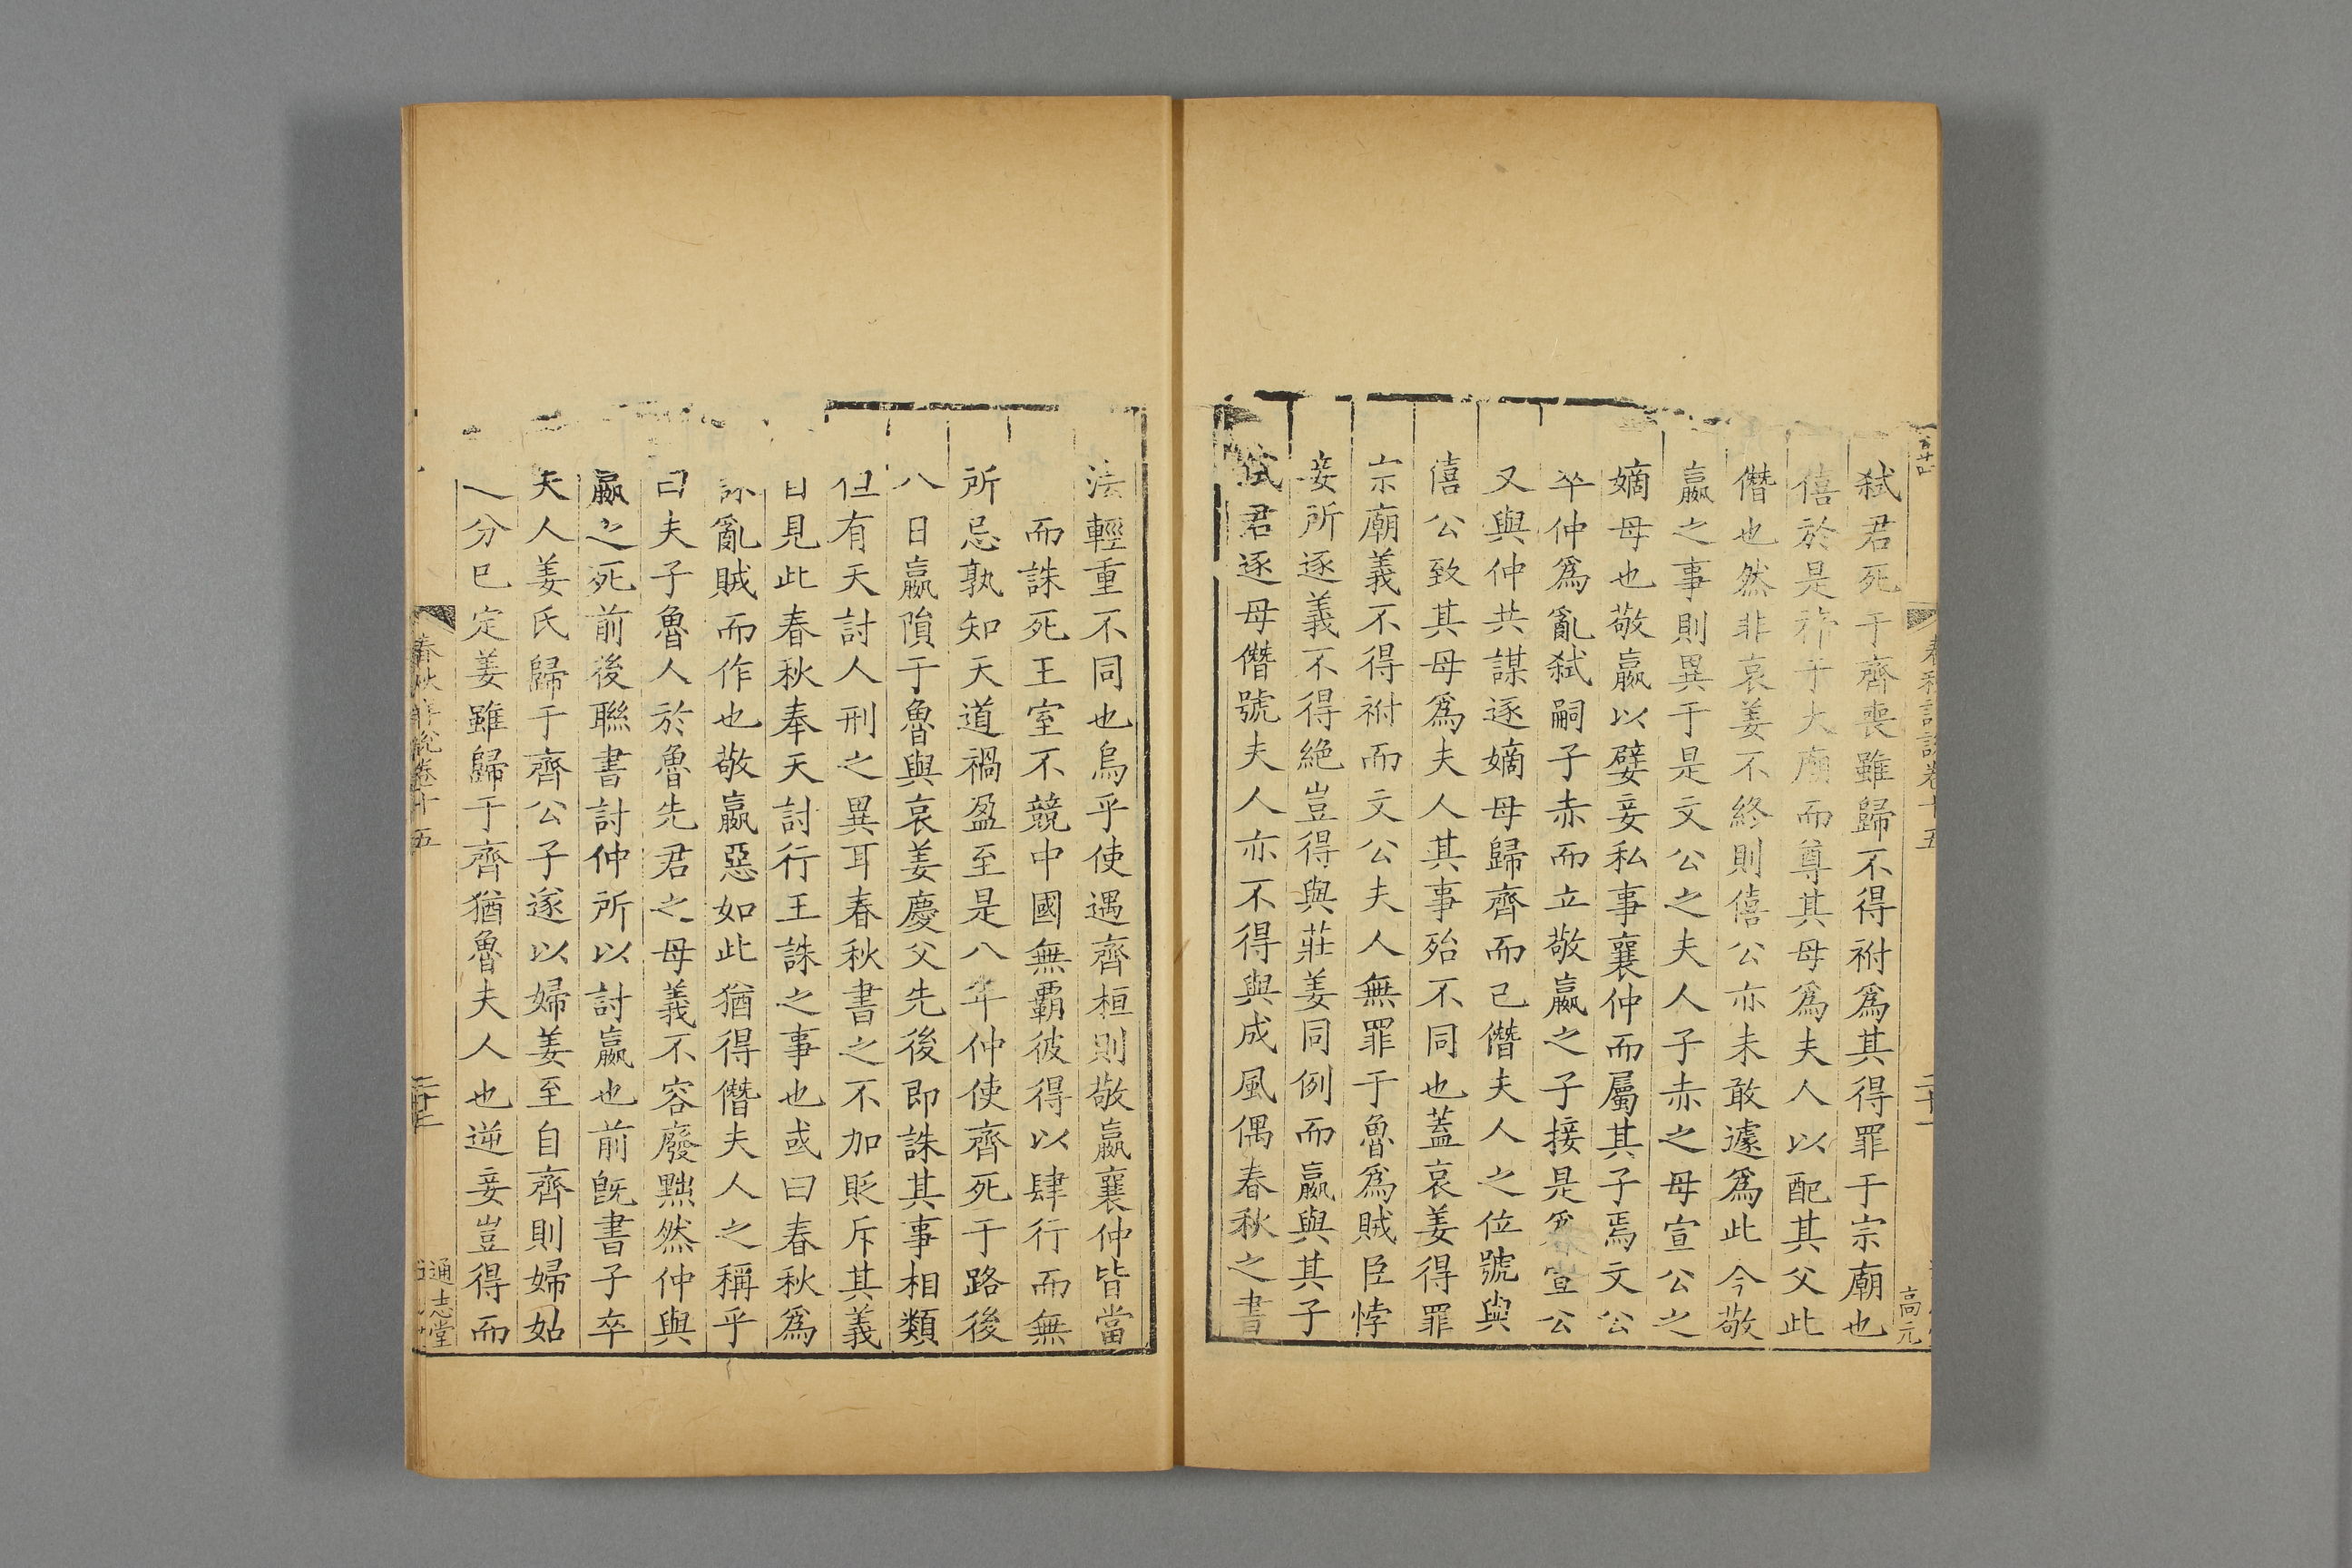 弑君死于齊喪雖歸不得祔爲其得罪于宗廟也
僖於是禘于大廟而尊其母爲夫人以配其父此
僭也然非哀姜不終則僖公亦未敢遽爲此今敬
嬴之事則異于是文公之夫人子赤之母宣公之
嫡母也敬嬴以嬖妾私事襄仲而屬其子焉文公
卒仲爲亂弑嗣子赤而立敬嬴之子接是爲宣公
又與仲共謀逐嫡母歸齊而己僭夫人之位號與
僖公致其母爲夫人其事殆不同也蓋哀姜得罪
宗廟義不得祔而文公夫人無罪于魯爲賊臣悖
妾所逐義不得絶豈得與莊姜同例而嬴與其子
弑君逐母僭號夫人亦不得與成風偶春秋之書
法輕重不同也烏乎使遇齊桓則敬嬴襄仲皆當
而誅死王室不競中國無覇彼得以肆行而無
所忌孰知天道禍盈至是八年仲使齊死于路後
八日嬴隕于魯與哀姜慶父先後即誅其事相類
但有天討人刑之異耳春秋書之不加貶斥其義
日見此春秋奉天討行王誅之事也或曰春秋爲
亂賊而作也敬嬴惡如此猶得僭夫人之稱乎
曰夫子魯人於魯先君之母義不容廢黜然仲與
嬴之死前後聯書討仲所以討嬴也前旣書子卒
夫人姜氏歸于齊公子遂以婦姜至自齊則婦姑
之分已定姜雖歸于齊猶魯夫人也逆妾豈得而
春秋詳說卷十五
通志堂
高元